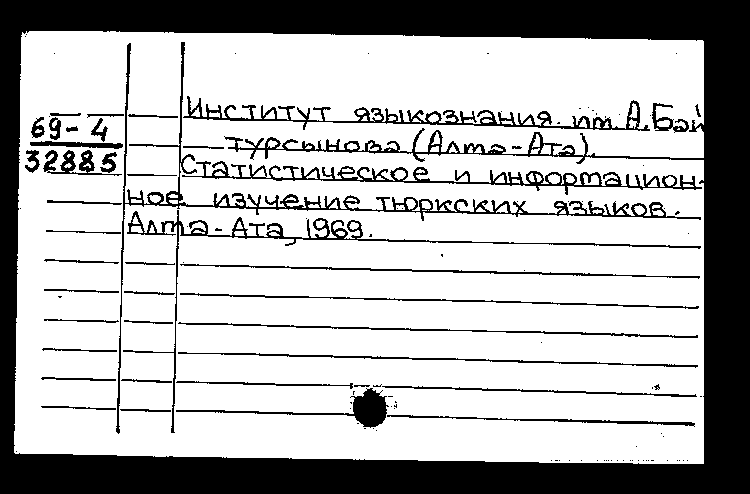 Институт языкознания им. А. Бай
69-4
турсынова (Алма-Ата).
32885
Статистическое и информацион-
ное изучение тюркских языков.
Алма-Ата, 1969.